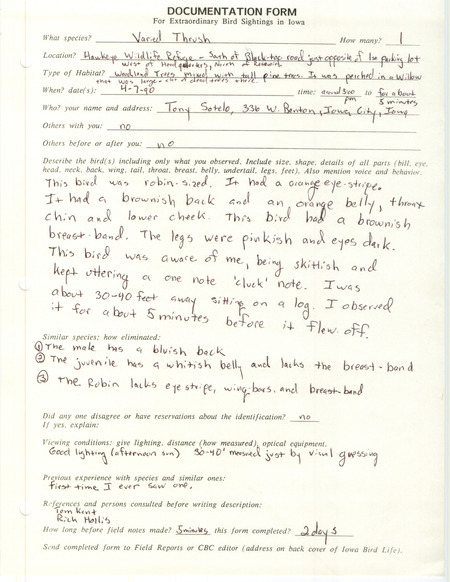 DOCUMENTATION FORM
For Extraordinary Bird Sightings in Iowa
What species? Varied Thrush How many? 1
Location? Hawkeye Wildlife Refuge - South of Black-top road just opposite of 1so parking lot
West of Headquarters, North of Reservoir
Type of Habitat? Woodland Trees mixed with tall pine trees. It was perched in a Willow
that was large - car of dead trees there.
When? date(s): 4-7-90 time: around 3:00 pm to for about 5 minutes
Who? your name and address: Tony Sotelo, 336 W. Benton, Iowa City, Iowa
Others with you: no
Others before or after you: no
Describe the bird(s) including only what you observed. Include size, shape, details of all parts (bill, eye,
head, neck, back, wing, tail, throat, breast, belly, undertail, legs, feet). Also mention voice and behavior.
This bird was robin-sized. It had a orange eye-stripe.
It had a brownish back and an orange belly, throat
chin and lower cheek. This bird had a brownish
breast-band. The legs were pinkish and eyes dark.
This bird was aware of me, being skittish and
kept uttering a one note 'cluck' note. I was
about 30-40 feet away sitting on a log. I observed
it for about 5 minutes before it flew off.
Similar species; how eliminated:
① The male has a bluish back
② The juvenile has a whitish belly and lacks the breast-band
③ The Robin lacks eyestripe, wing-bars, and breast-band
Did any one disagree or have reservations about the identification? no
If yes, explain:
Viewing conditions: give lighting, distance (how measured), optical equipment.
Good lighting (afternoon sun) 30-40' measured just by visual guessing
Previous experience with species and similar ones:
first time I ever saw one.
References and persons consulted before writing description:
Tom Kent
Rich Hollis
How long before field notes made? 5 minutes this form completed? 2 days
Send completed form to Field Reports or CBC editor (address on back cover of Iowa Bird Life).